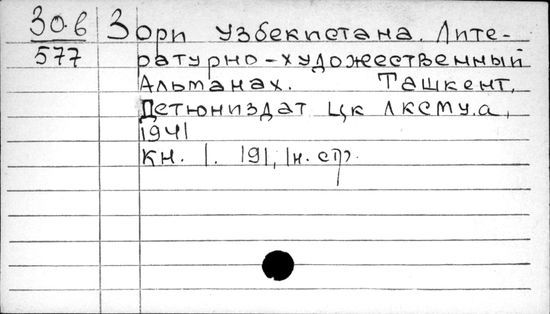 30-6 Зори Узбекистана. Лите-
577 ратурно-художественный
Альманах. Ташкент,
Детюниздат ЦК ЛКСМУз.а,
1941
Кн. 1. 191, 1н. стр.